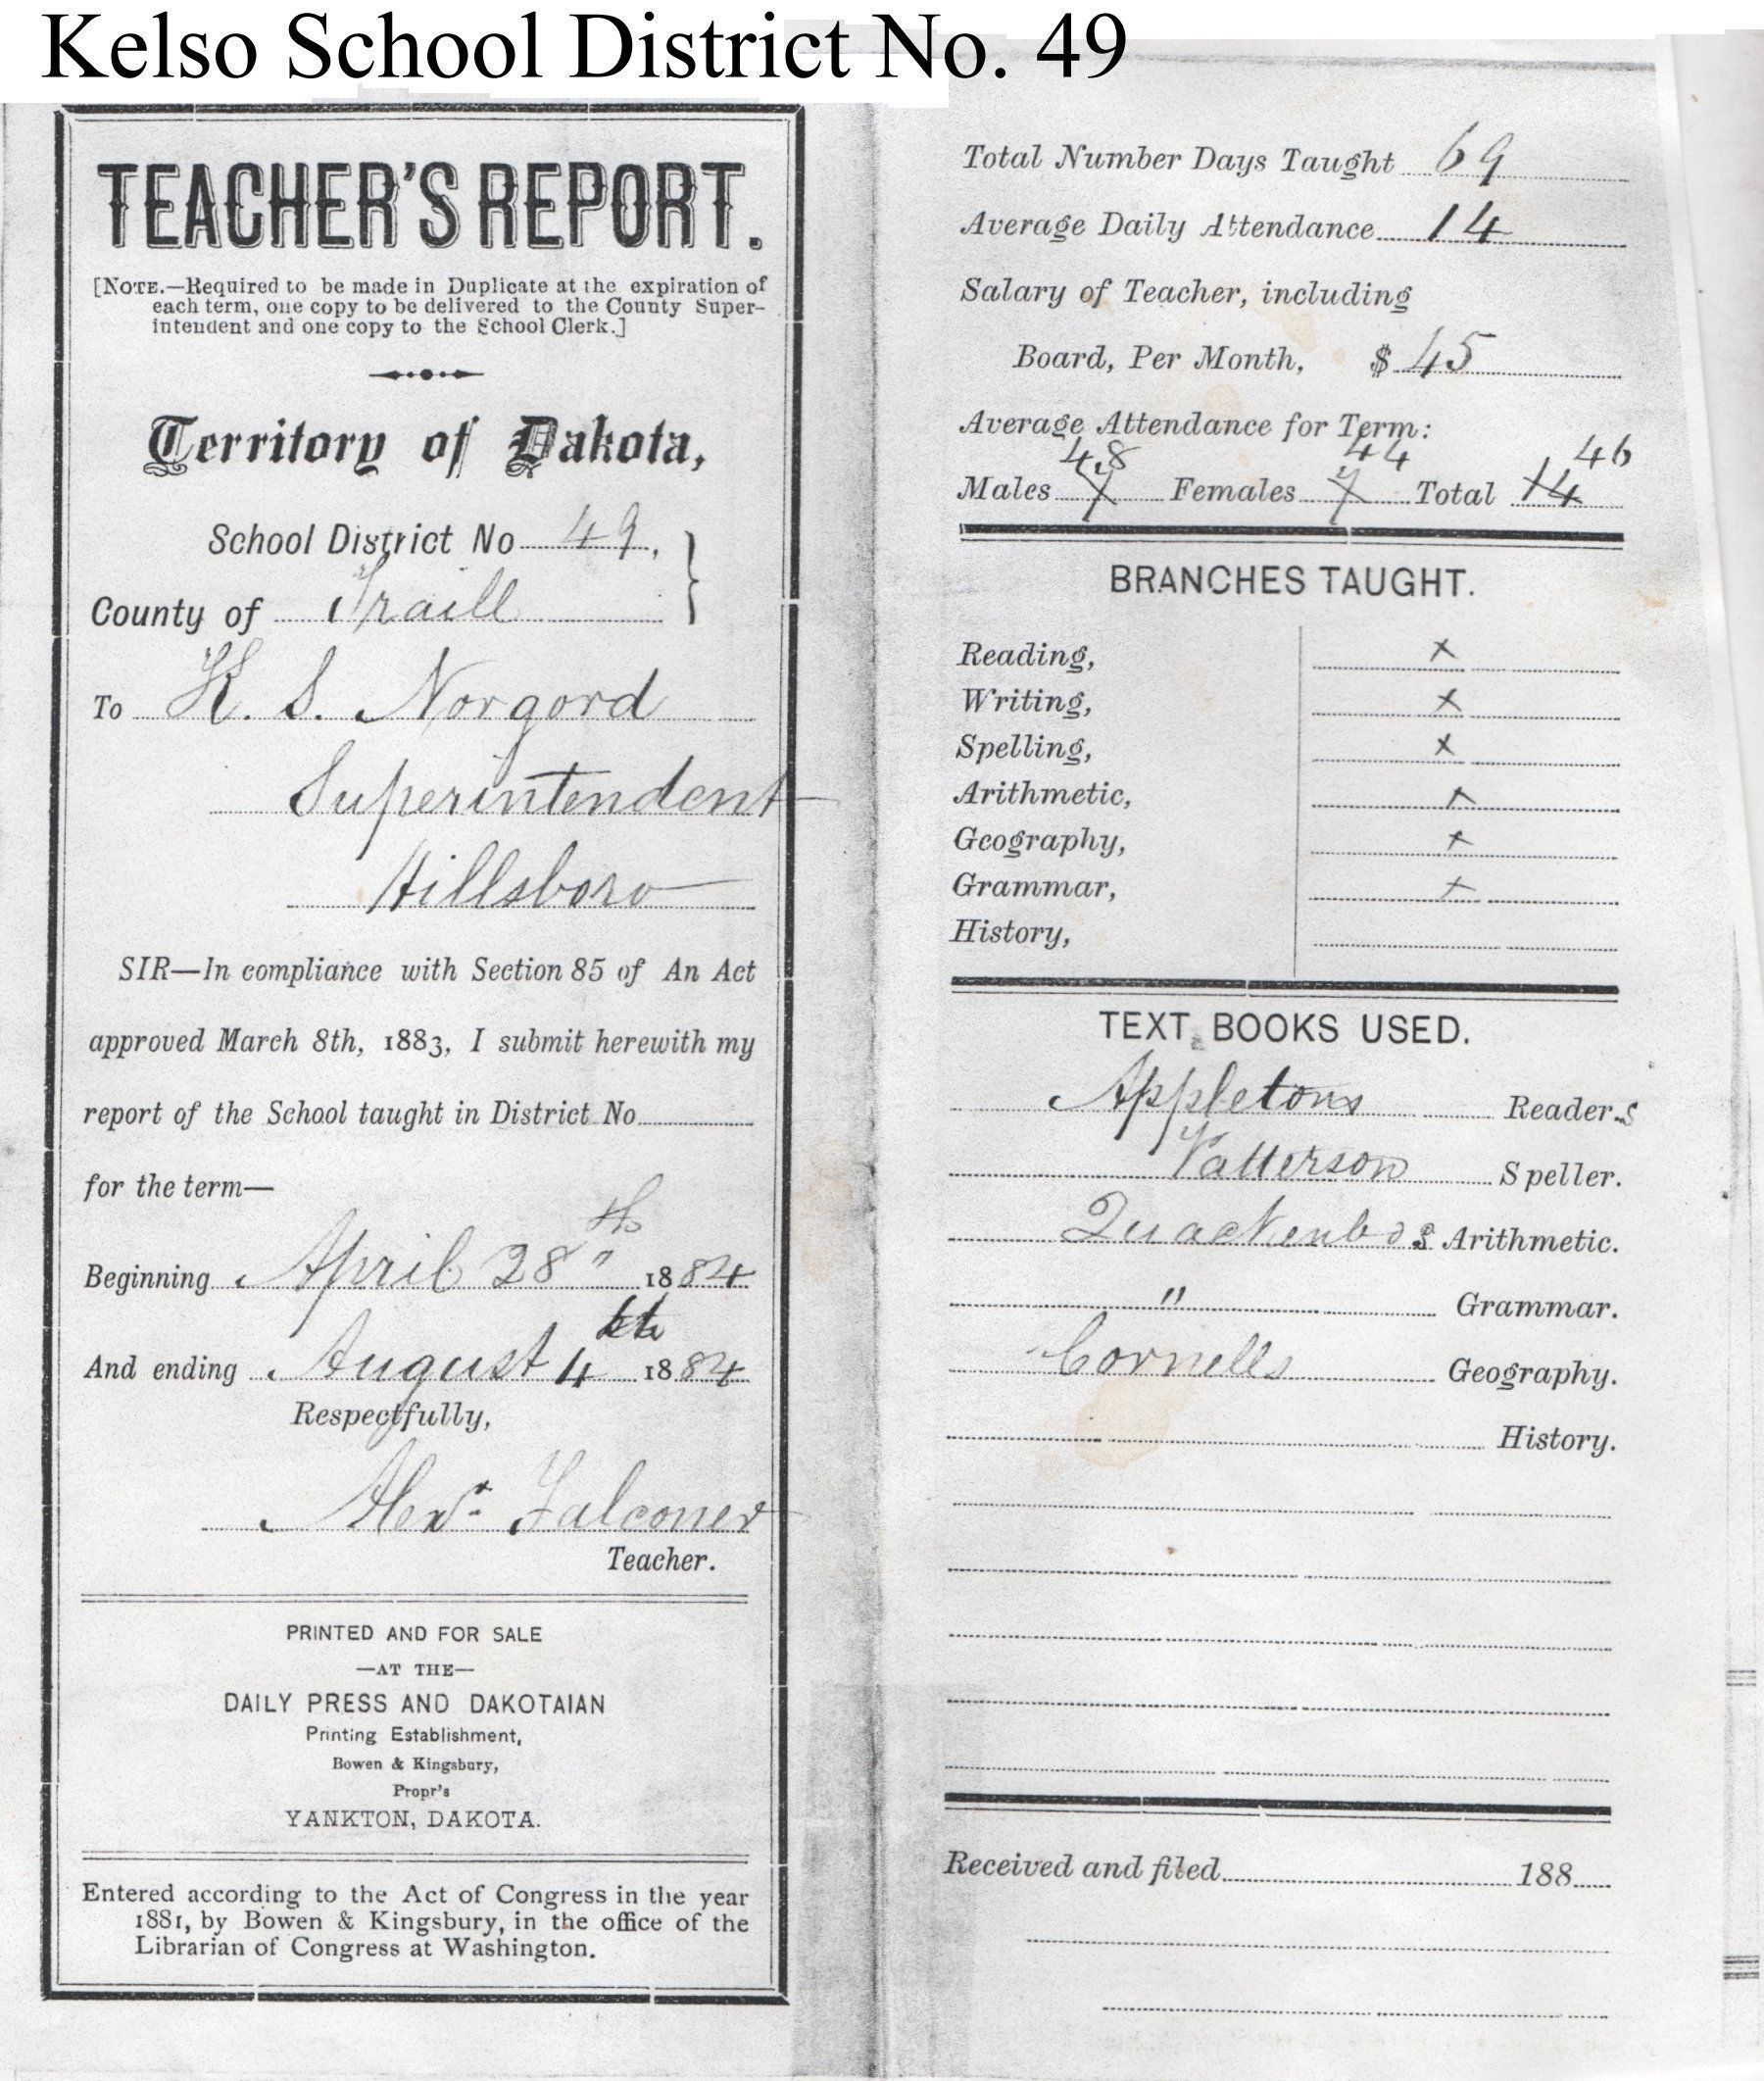 Kelso School District No. 49
TEACHER'S REPORT.
[NOTE.—Required to be made in Duplicate at the expiration of
each term, one copy to be delivered to the County Super-
intendent and one copy to the School Clerk.]
Territory of Dakota,
School District No 49,
County of Traill
To K. S. Norgord
Superintendent
Hillsboro
SIR—In compliance with Section 85 of An Act
approved March 8th, 1883, I submit herewith my
report of the School taught in District No
for the term—
Beginning April 28th 1884
And ending August 4th 1884
Respectfully,
Alexr. Falconer
Teacher.
PRINTED AND FOR SALE
—AT THE—
DAILY PRESS AND DAKOTAIAN
Printing Establishment,
Bowen & Kingsbury,
Propr's
YANKTON, DAKOTA.
Entered according to the Act of Congress in the year
1881, by Bowen & Kingsbury, in the office of the
Librarian of Congress at Washington.
Total Number Days Taught 69
Average Daily Attendance 14
Salary of Teacher, including
Board, Per Month, $ 45
Average Attendance for Term:
48 44 46
Males 7 Females 7 Total 14
BRANCHES TAUGHT.
Reading, x
Writing, x
Spelling, x
Arithmetic, x
Geography, x
Grammar, x
History,
TEXT BOOKS USED.
Appletons Readers
Patterson Speller.
Quackenbos Arithmetic.
" Grammar.
Cornells Geography.
History.
Received and filed 188